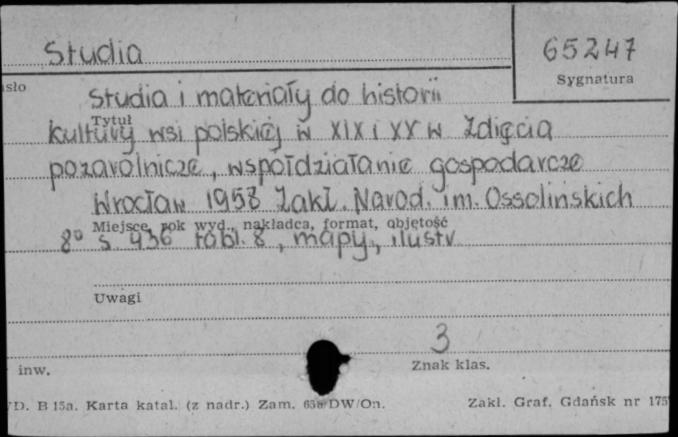 Studia 65247
sło Sygnatura
Studia i materiały do historii
Tytuł
kultury wsi polskiej w XIX i XX w Zdjęcia
pozarolnicze, współdziałanie gospodarcze
Wrocław 1958 Zakł. Narod. im. Ossolińskich
Miejsce, rok wyd., nakładca, format, objętość
8° s 436 tabl. 8, mapy, ilustr
Uwagi
3
inw. Znak klas.
D. B 15a. Karta katal. (z nadr.) Zam. 65a/DW/On. Zakl. Graf. Gdańsk nr 175